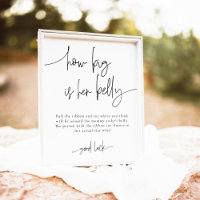 how big
is her belly
Pull the ribbon and say where you think
will fit around the mommy today's belly.
The person with the ribbon cut closest to
her actual size wins!
good luck